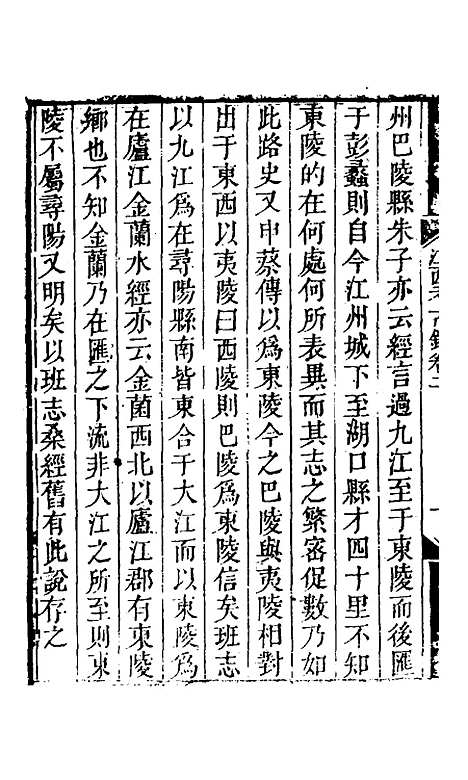 州巴陵縣朱子亦云經言過九江至于東陵而後匯
于彭蠡則自今江州城下至湖口縣才四十里不知
東陵的在何處何所表異而其志之繁密促數乃如
此路史又申蔡傳以爲東陵今之巴陵與夷陵相對
出于東西以夷陵曰西陵則巴陵爲東陵信矣班志
以九江爲在尋陽縣南皆東合于大江而以東陵爲
在廬江金蘭水經亦云金蘭西北以廬江郡有東陵
鄉也不知金蘭乃在匯之下流非大江之所至則東
陵不屬尋陽又明矣以班志桑經舊有此說存之